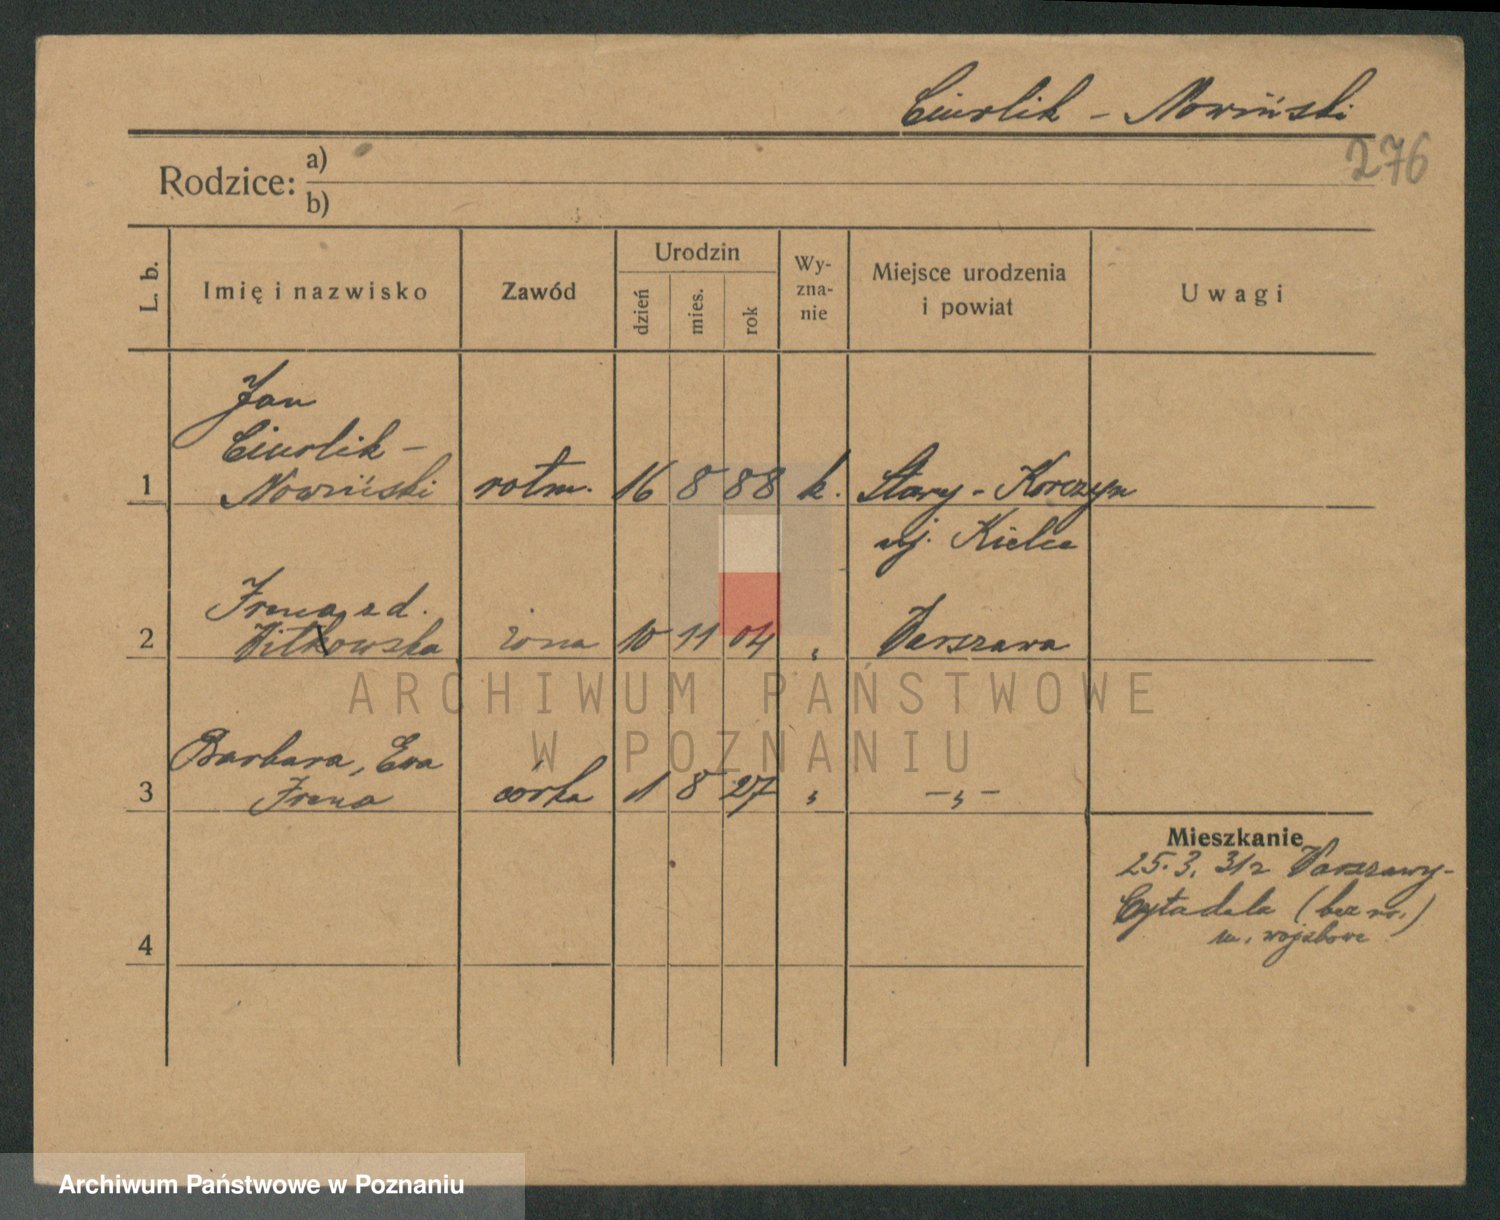 Ciurlik - Nowiński
276
Rodzice: a)
b)
L. b.
Imię i nazwisko
Zawód
Urodzin
dzień
mies.
rok
Wy-
zna-
nie
Miejsce urodzenia
i powiat
Uwagi
Jan
Ciurlik -
1 Nowiński rotm. 16 8 88 k. Stary - Korczyn
wj. Kielce
Irena z d.
2 Witkowska żona 10 11 04 " Warszawa
Barbara, Ewa
3 Irena córka 1 8 27 " - " -
Mieszkanie
25.3.31 z Warszawy-
Cytadela (bez nr.)
m. wojskowe
4
ARCHIWUM PAŃSTWOWE
W POZNANIU
Archiwum Państwowe w Poznaniu